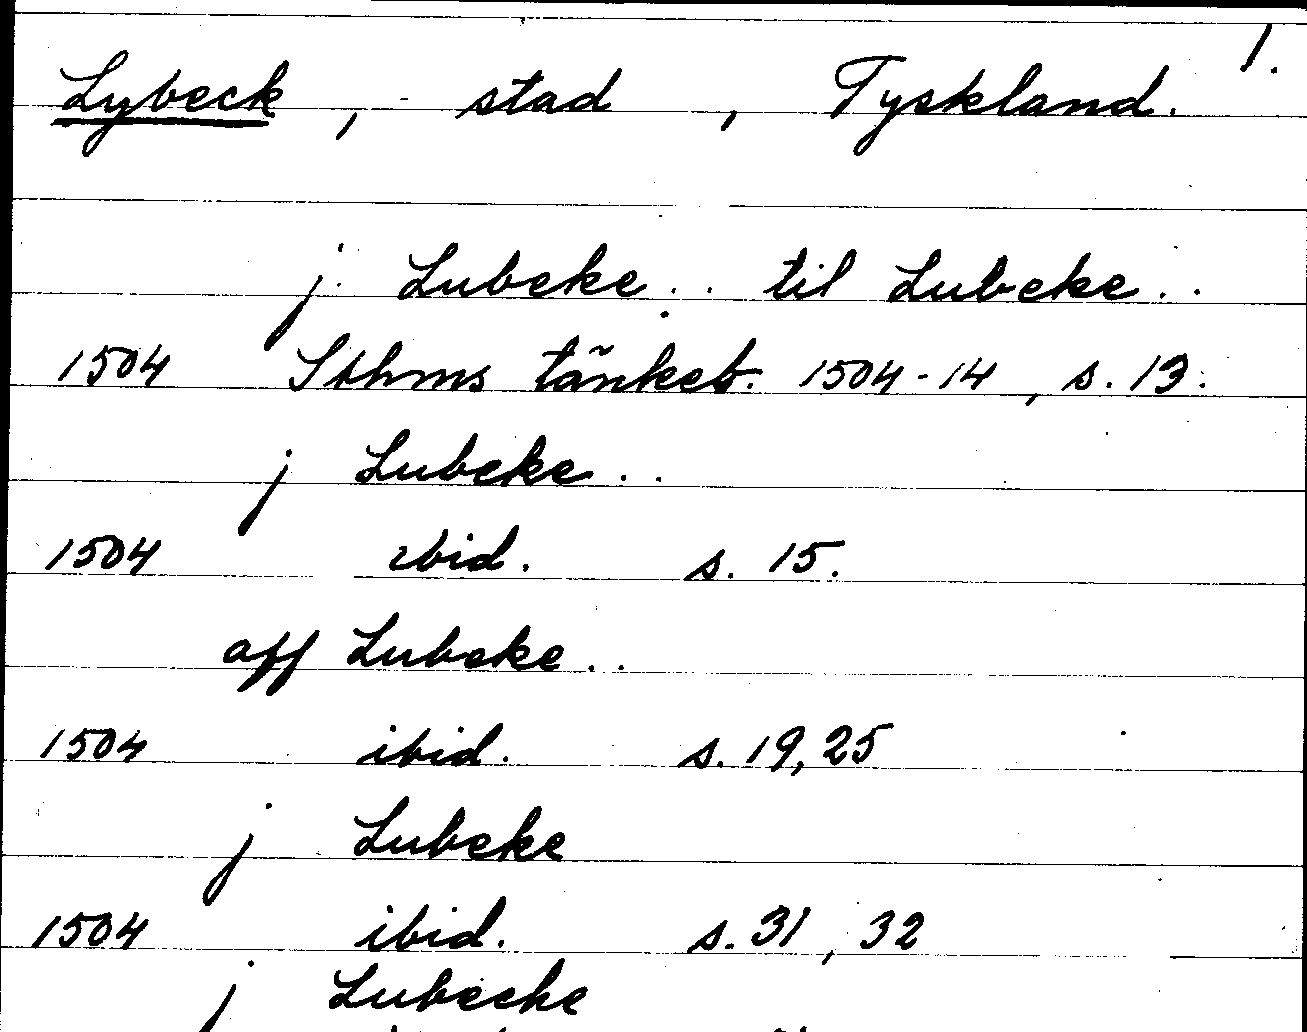 1.
Lybeck, stad, Tyskland.
j Lubeke .. til Lubeke ..
1504 Sthms tänkeb. 1504-14, s. 13.
j Lubeke ..
1504 ibid. s. 15.
aff Lubeke ..
1504 ibid. s. 19, 25
j Lubeke
1504 ibid. s. 31, 32
j Lubecke